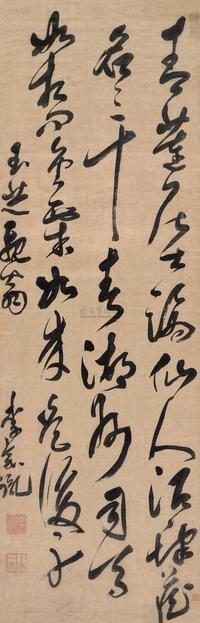 青蓮居士謫仙人酒肆藏
名三十春湖州司馬
如相問金粟如來是後身
李